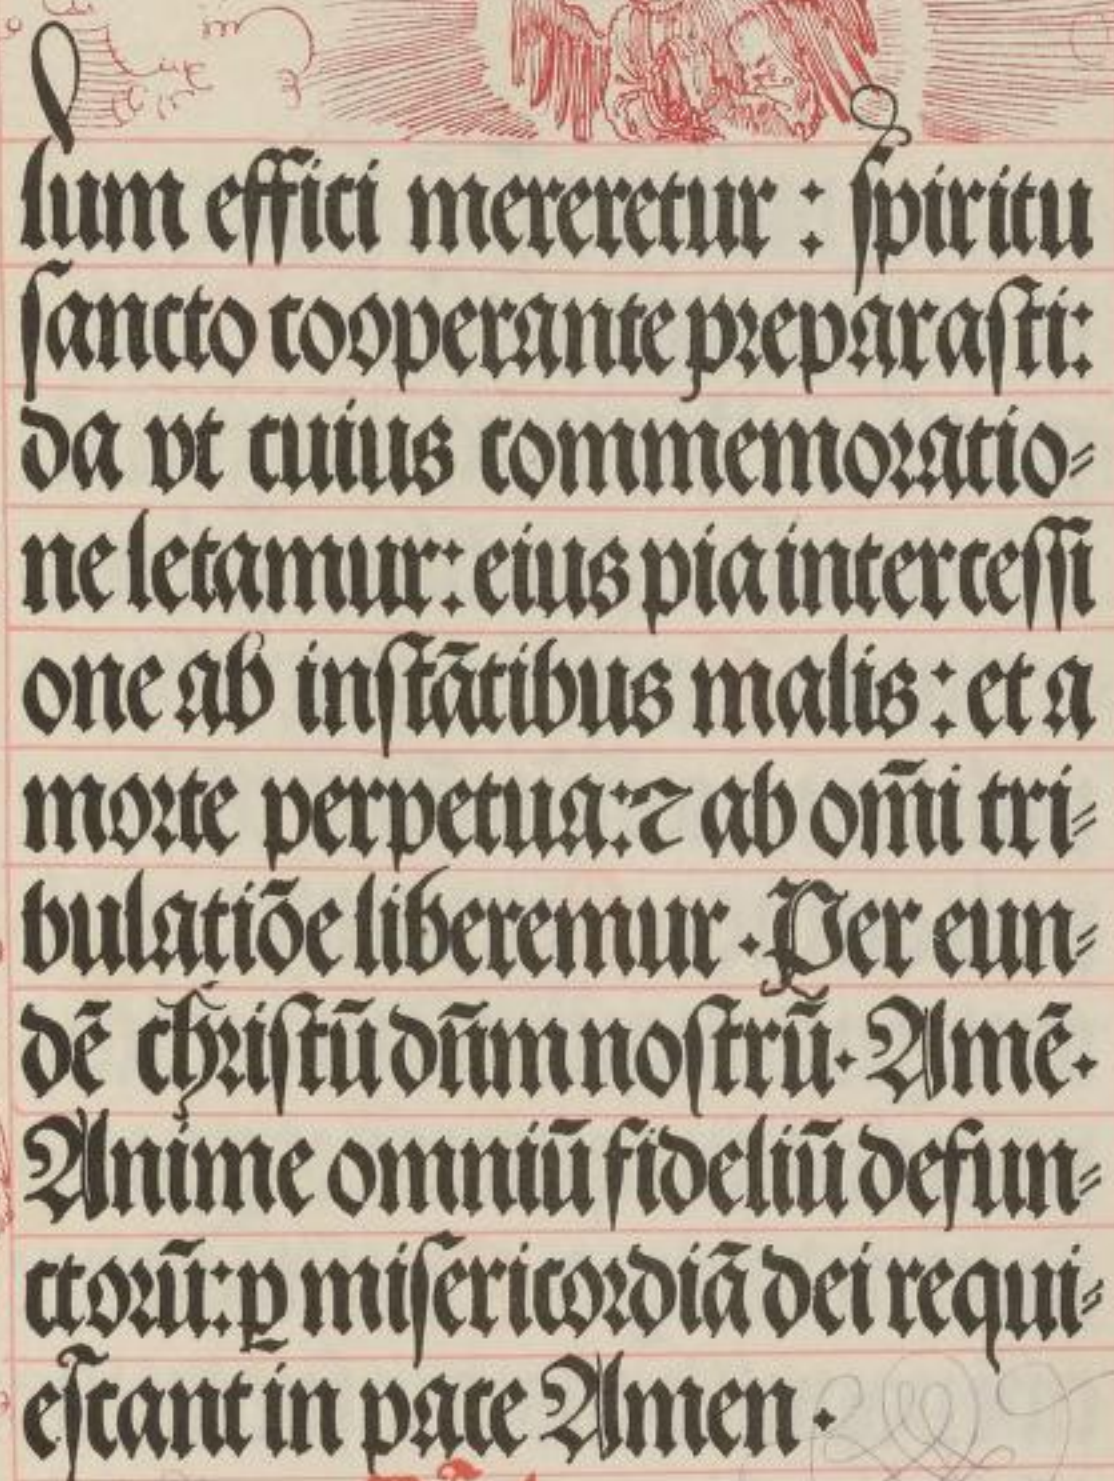 lum effici mereretur : ſpiritu
ſancto cooperante preparaſti:
da vt cuius commemoratio-
ne letamur: eius pia interceſſi
one ab inſtãtibus malis : et a
morte perpetua: ⁊ ab om̃i tri-
bulatiõe liberemur . Per eun-
dẽ chriſtũ dñm noſtrũ. Amẽ.
Anime omniũ fideliũ defun-
ctorũ: ꝑ miſericordiã dei requi-
eſcant in pace Amen .